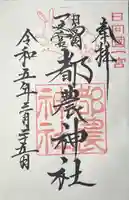 日向國一宮
奉拝
日向國
一之宮
都農神社
令和五年三月二五日
都農神社